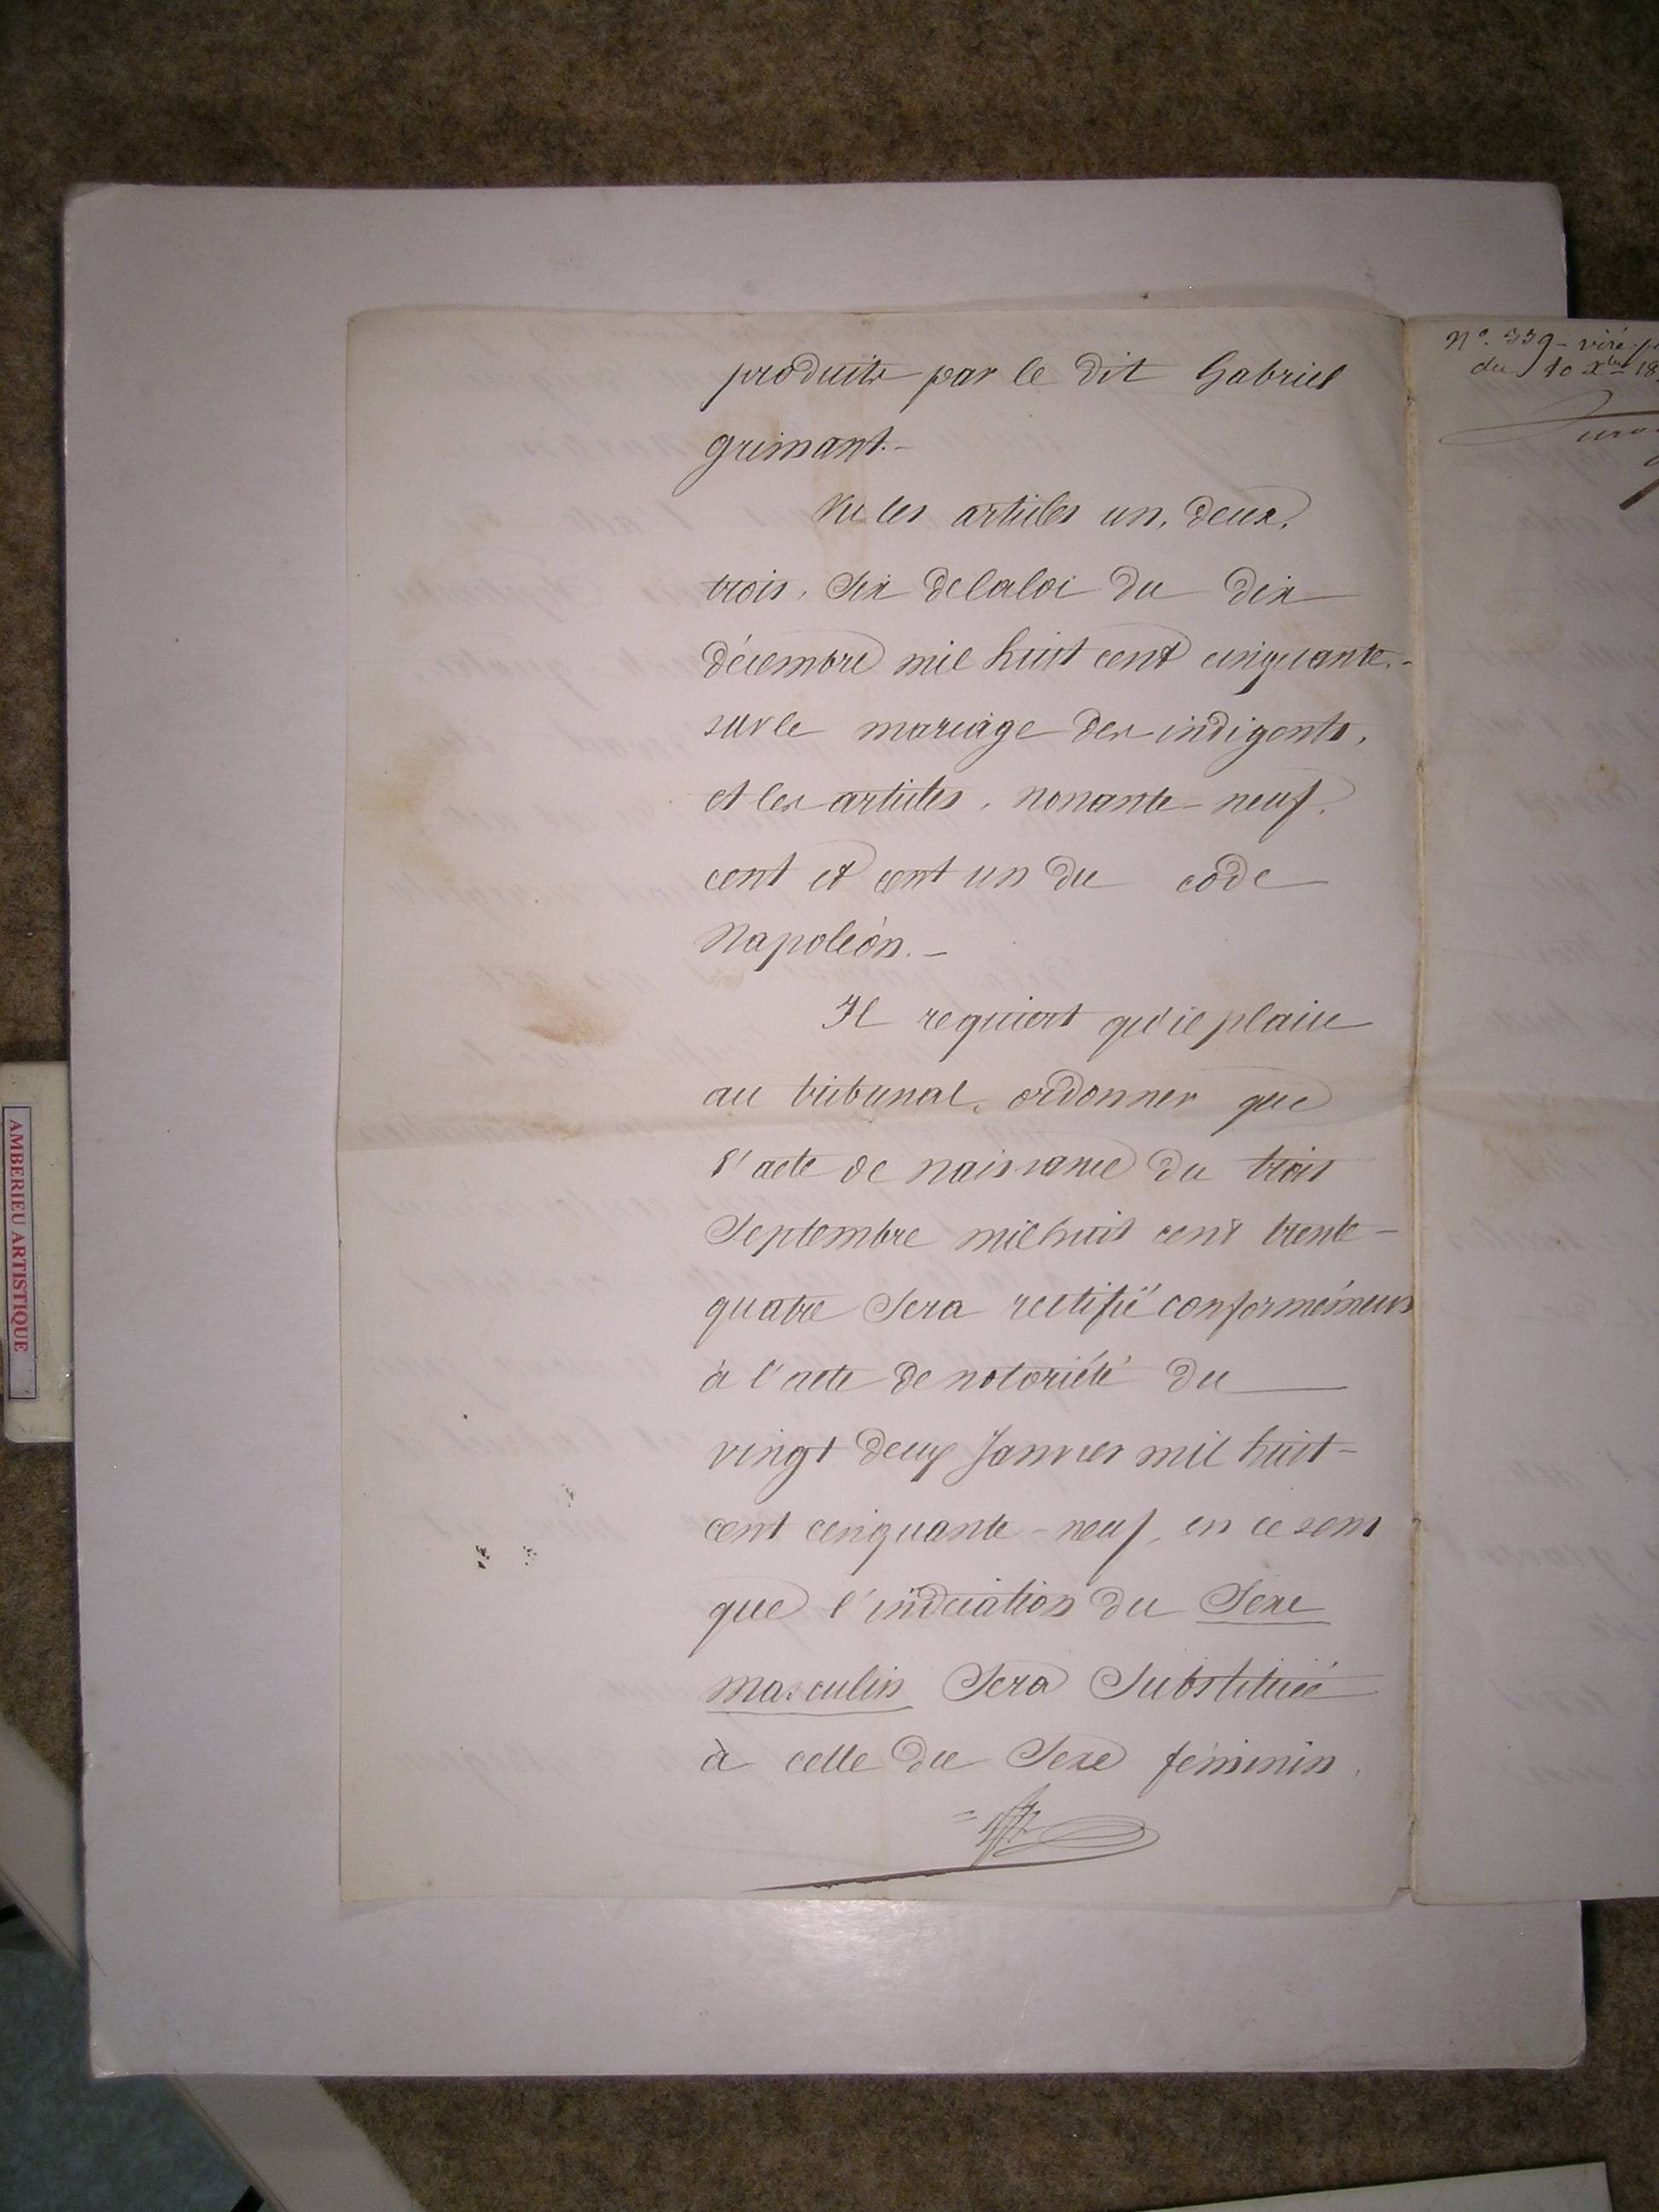 produite par le dit Gabriel
grimant.-
Vu les articles un, deux,
trois, six de la loi du dix
décembre mil huit cent cinquante.-
sur le mariage des indigents,
et les articles, nonante neuf,
cent et cent un du code
Napoléon.-
Il requiert qu'il plaise
au tribunal, ordonner que
l'acte de naissance du trois
Septembre mil huit cent trente-
quatre sera rectifié conformément
à l'acte de notoriété du
vingt deux Janvier mil huit-
cent cinquante-neuf, en ce sens
que l'indication du Sexe
masculin sera Substituée
à celle du Sexe féminin.
N°. 339 - visé
du 10 Xbre 18
AMBERIEU ARTISTIQUE